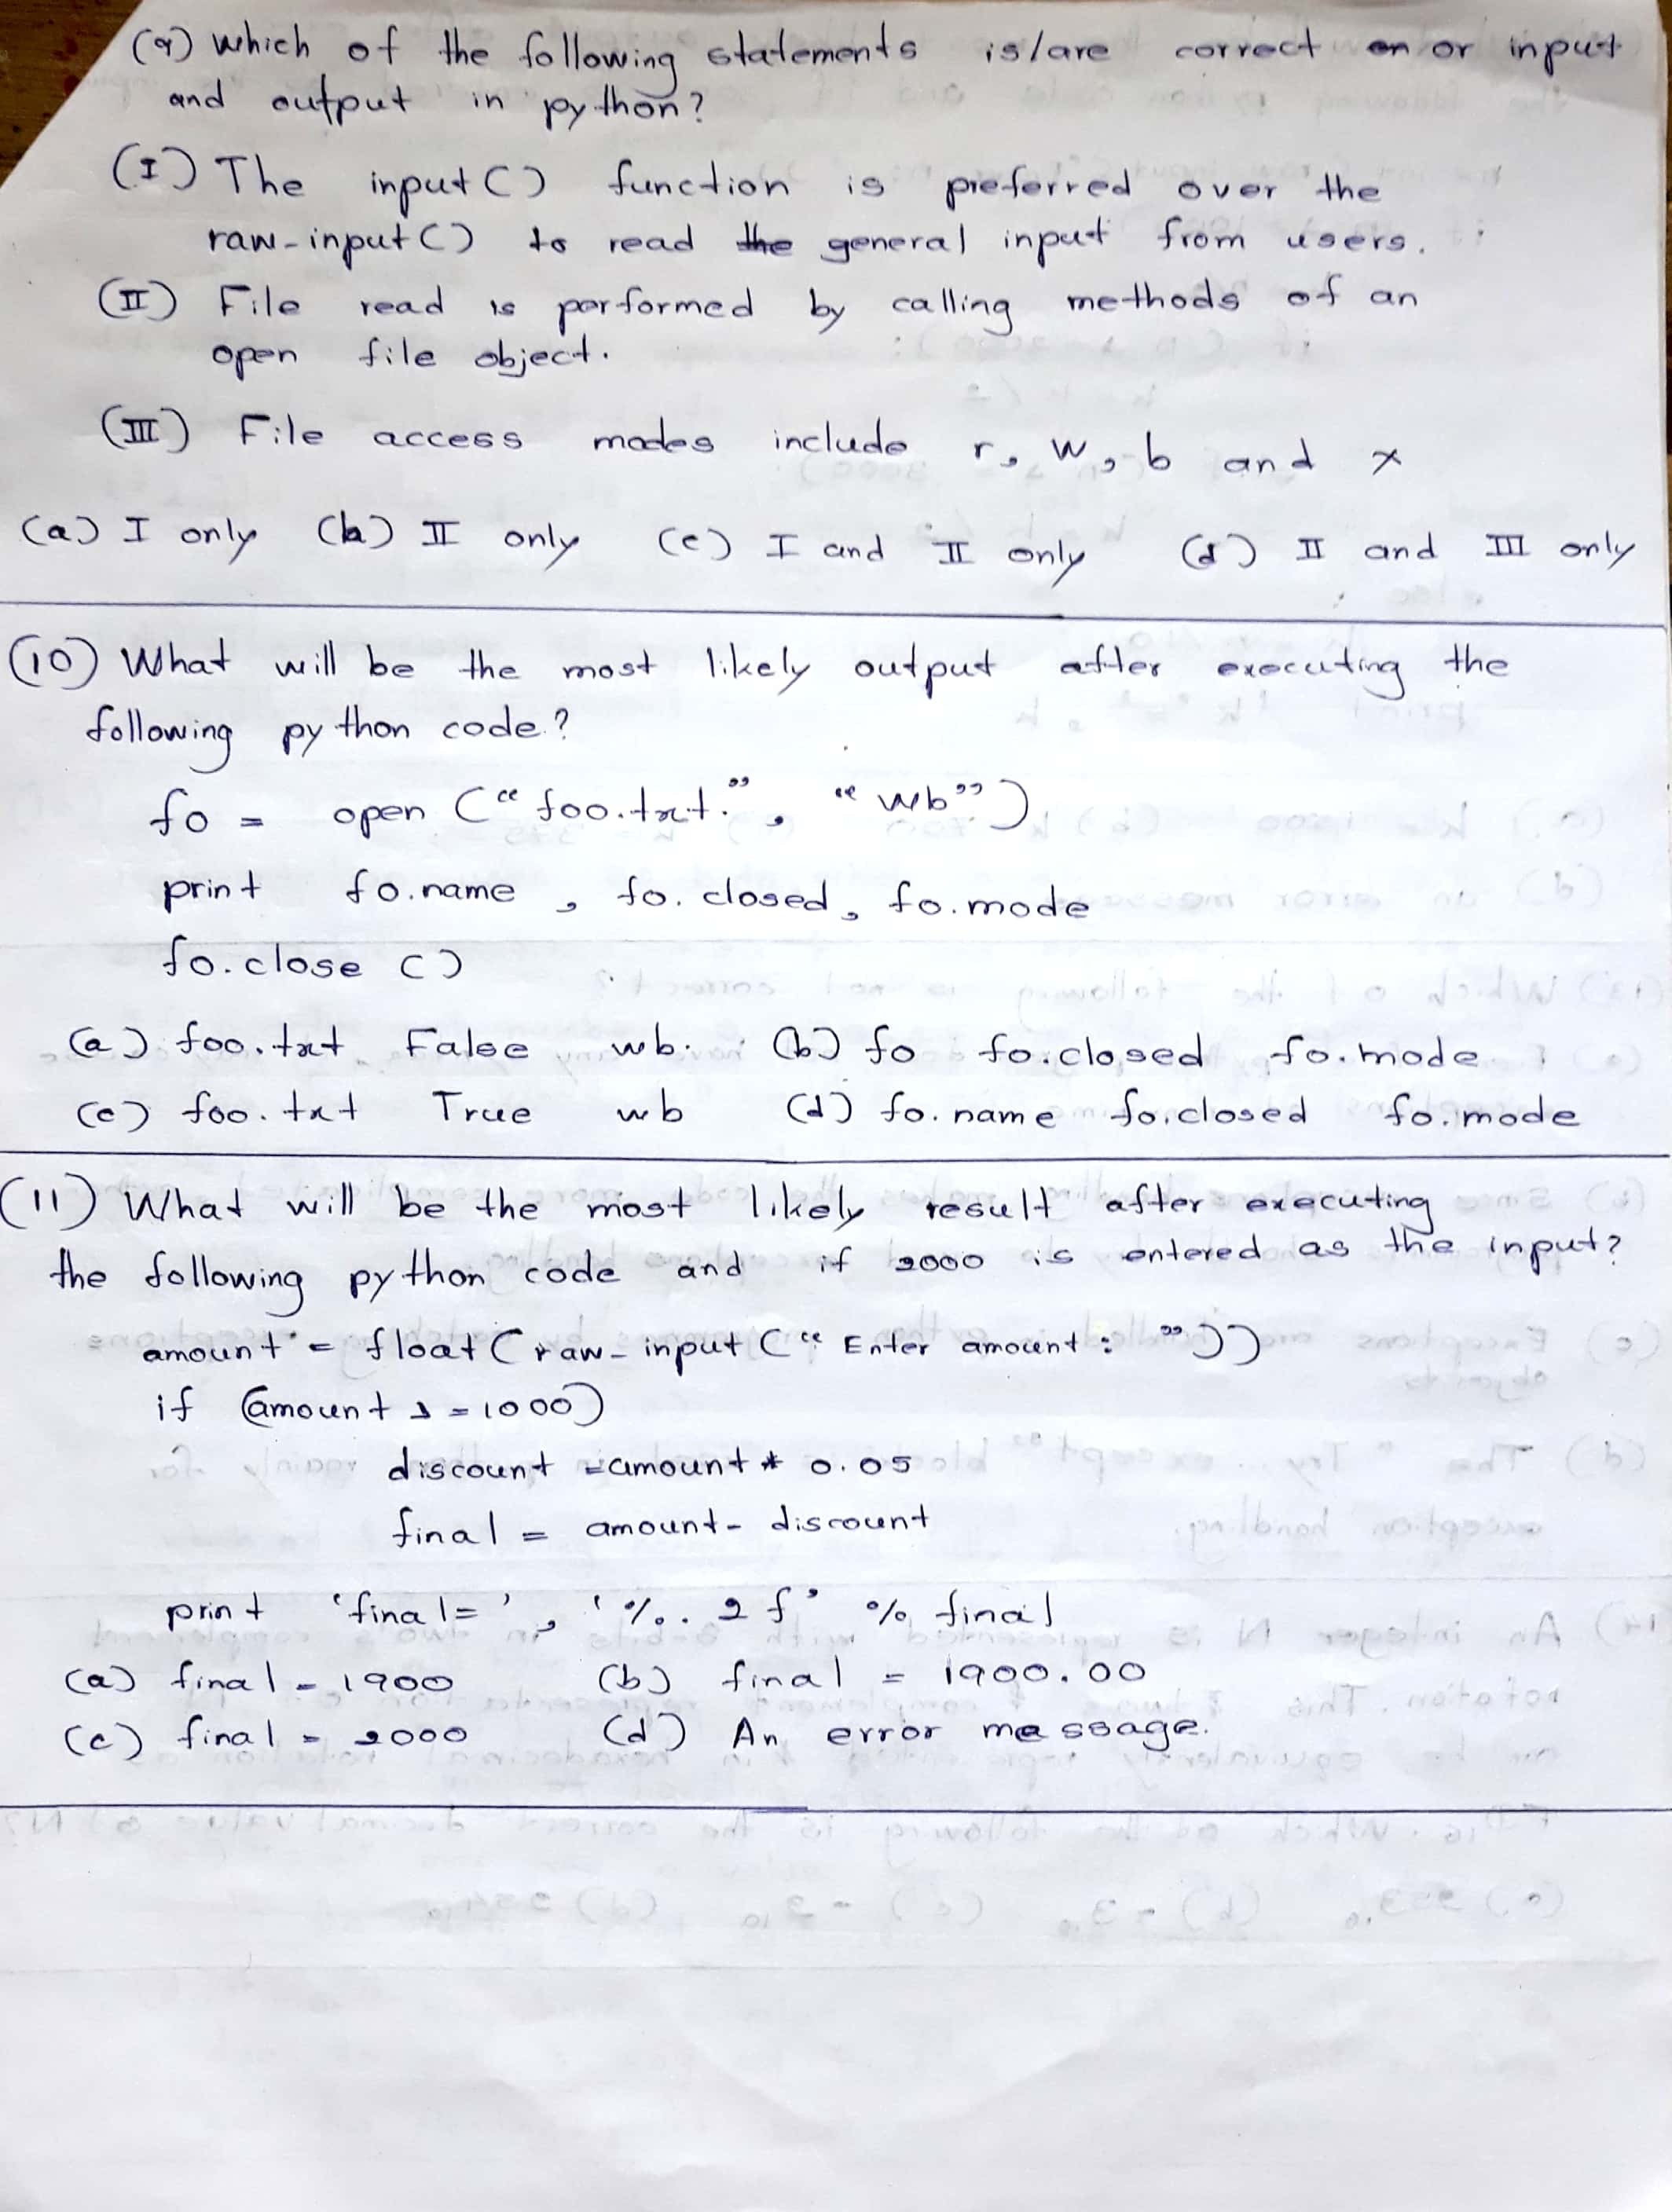 (9) which of the following statements is/are correct on or input
and output in python?
(I) The input() function is preferred over the
raw-input() to read the general input from users.
(II) File read is performed by calling methods of an
open file object.
(III) File access modes include r, w, b and x
(a) I only (b) II only (c) I and II only (d) II and III only
(10) What will be the most likely output after executing the
following python code?
fo = open ("foo.txt.", "wb")
print fo.name, fo.closed, fo.mode
fo.close ()
(a) foo.txt False wb. (b) fo fo.closed fo.mode
(c) foo.txt True wb (d) fo.name fo.closed fo.mode
(11) What will be the most likely result after executing
the following python code and if 2000 is entered as the input?
amount = float (raw-input ("Enter amount: "))
if (amount >=1000)
discount =amount * 0.05
final = amount- discount
print 'final=', '%.2f' % final
(a) final = 1900 (b) final = 1900.00
(c) final = 2000 (d) An error message.